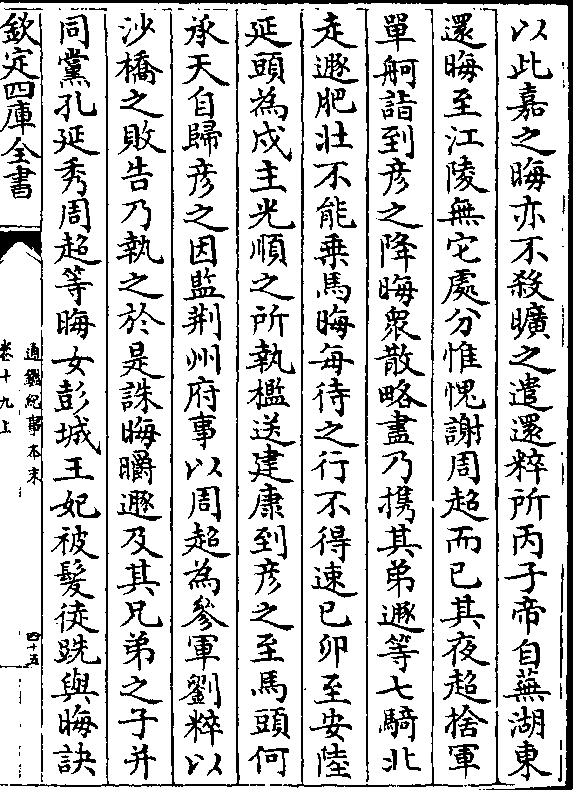 以此嘉之晦亦不殺曠之遣還粹所丙子帝自蕪湖東
還晦至江陵無它處分惟愧謝周超而已其夜超捨軍
單舸詣到彥之降晦衆散略盡乃擕其弟遯等七騎北
走遯肥壯不能乗馬晦每待之行不得速已卯至安陸
延頭為戍主光順之所執檻送建康到彥之至馬頭何
承天自歸彥之因監荆州府事以周超為參軍劉粹以
沙橋之敗告乃執之於是誅晦㬭遯及其兄弟之子并
同黨孔延秀周超等晦女彭城王妃被髮徒跣與晦訣
欽定四庫全書
通鑑紀事本末
卷十九上
四十五